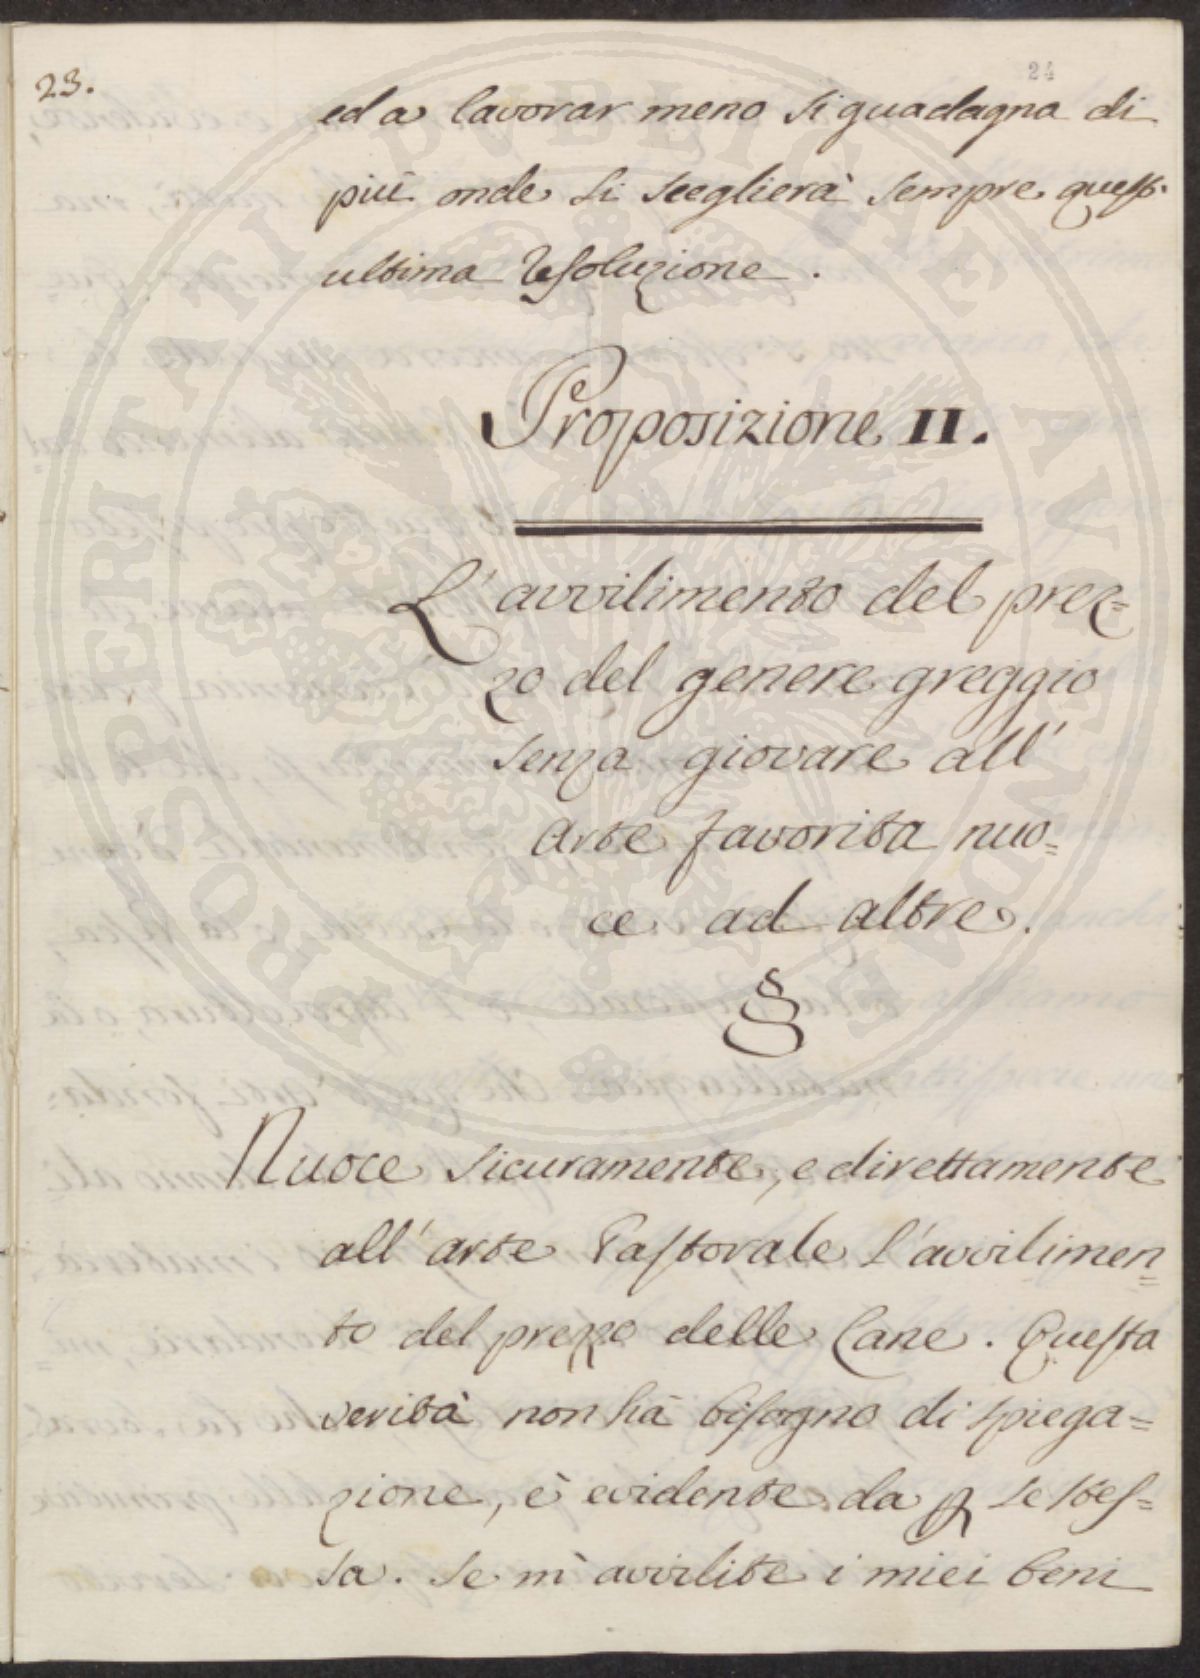 23.
24
ed a lavorar meno si guadagna di
più onde si sceglierà sempre quest.
ultima resoluzione.
Proposizione II.
L'avvilimento del prez=
zo del genere greggio
senza giovare all'
arte favorita nuo=
ce ad altre.
Nuoce sicuramente, e direttamente
all'arte Pastorale l'avvilimen=
to del prezzo delle Lane. Questa
verità non hà bisogno di spiega=
zione, è evidente da p se stes=
sa. Se m'avvilite i miei beni
PROSPERITATI PUBLICAE AUGENDAE